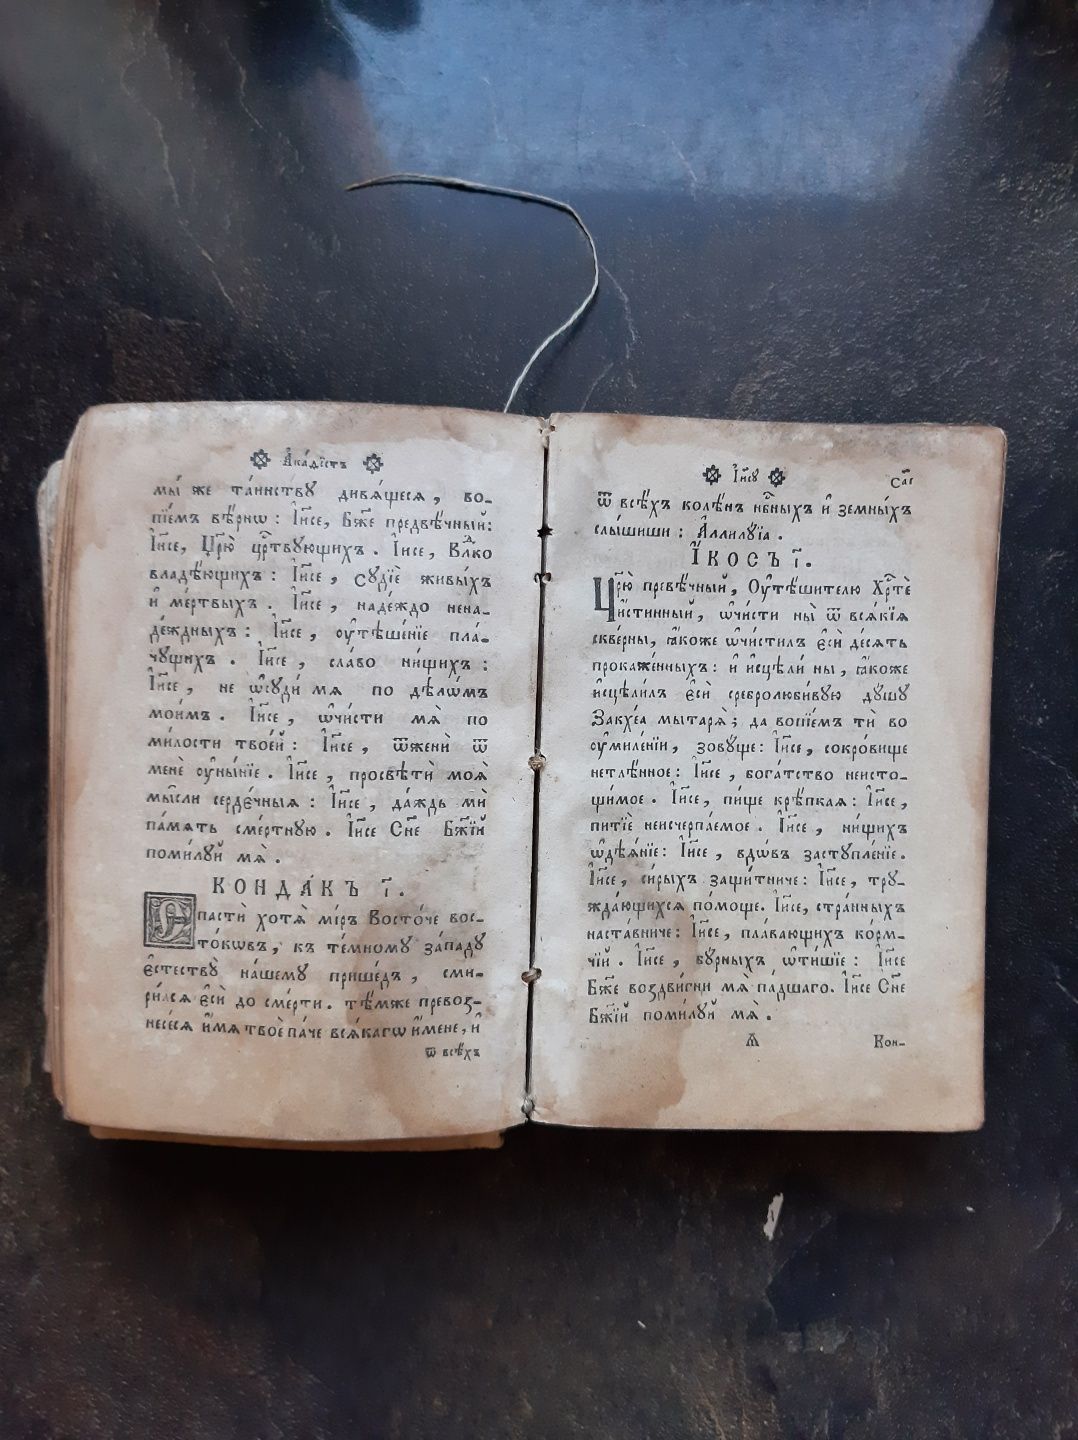 Ака́ѳїстъ
мы́ же та́инствꙋ дивѧ́щесѧ, во-
пїе́мъ вѣ́рнѡ: І҆и҃се, Бж҃е предвѣ́чный:
І҆и҃се, Цр҃ю̀ црⷭ҇твꙋющихъ. І҆и҃се, Влⷣко
владѣ́ющихъ: І҆и҃се, сꙋдїѐ живы́хъ
и҆ ме́ртвыхъ. І҆и҃се, наде́ждо нена-
де́ждныхъ: І҆и҃се, ѹ҆тѣше́нїе пла́-
чꙋщихъ. І҆и҃се, сла́во ни́щихъ:
І҆и҃се, не ѡ҆сꙋди́ мѧ по дѣлѡ́мъ
мои́мъ. І҆и҃се, ѡ҆чи́сти мѧ̀ по
ми́лости твое́й: І҆и҃се, ѿженѝ ѿ
менѐ ѹ҆ны́нїе. І҆и҃се, просвѣтѝ моѧ̀
мы̑сли серде́чныѧ: І҆и҃се, да́ждь мѝ
па́мѧть сме́ртнꙋю. І҆и҃се Сн҃е Бж҃їй
поми́лꙋй мѧ̀.
КОНДА́КЪ І҃.
Спастѝ хотѧ̀ мі́ръ Восто́че вос-
то́кѡвъ, къ те́мномꙋ за́падꙋ
є҆стествꙋ̀ на́шемꙋ прише́дъ, сми-
ри́лсѧ є҆сѝ до сме́рти. тѣ́мже превоз-
несе́сѧ и҆́мѧ твоѐ па́че всѧ́кагѡ и҆́мене, и҆
ѿ всѣ́хъ
І҆и҃сꙋ
Сас
ѿ всѣ́хъ колѣ́нъ нбⷭ҇ныхъ и҆ земны́хъ
слы́шиши: А҆ллилꙋ́їа.
І҆́КОСЪ І҃.
Цр҃ю̀ превѣ́чный, Оу҆тѣ́шителю Хрⷭ҇тѐ
и҆́стинный, ѡ҆чи́сти ны̀ ѿ всѧ́кїѧ
скве́рны, ꙗ҆́коже ѡ҆чи́стилъ є҆сѝ де́сѧть
прокаже́нныхъ: и҆ и҆сцѣли́ ны, ꙗ҆́коже
и҆сцѣли́лъ є҆сѝ сребролюби́вꙋю дꙋ́шꙋ
Закхе́а мытарѧ̀; да вопїе́мъ тѝ во
ѹ҆миле́нїи, зовꙋ́ще: І҆и҃се, сокро́вище
нетлѣ́нное: І҆и҃се, бога́тство неисто-
щи́мое. І҆и҃се, пи́ще крѣ́пкаѧ: І҆и҃се,
питїѐ неисчерпа́емое. І҆и҃се, ни́щихъ
ѡ҆дѣѧ́нїе: І҆и҃се, вдо́въ застꙋпле́нїе.
І҆и҃се, си́рыхъ защи́тниче: І҆и҃се, трꙋ-
жда́ющихсѧ по́моще. І҆и҃се, стра́нныхъ
наста́вниче: І҆и҃се, пла́вающихъ ко́рм-
чїй. І҆и҃се, бꙋ́рныхъ ѡ҆ти́шїе: І҆и҃се
Бж҃е воздви́гни мѧ̀ па́дшаго. І҆и҃се Сн҃е
Бж҃їй поми́лꙋй мѧ̀.
Ѧ Кон-